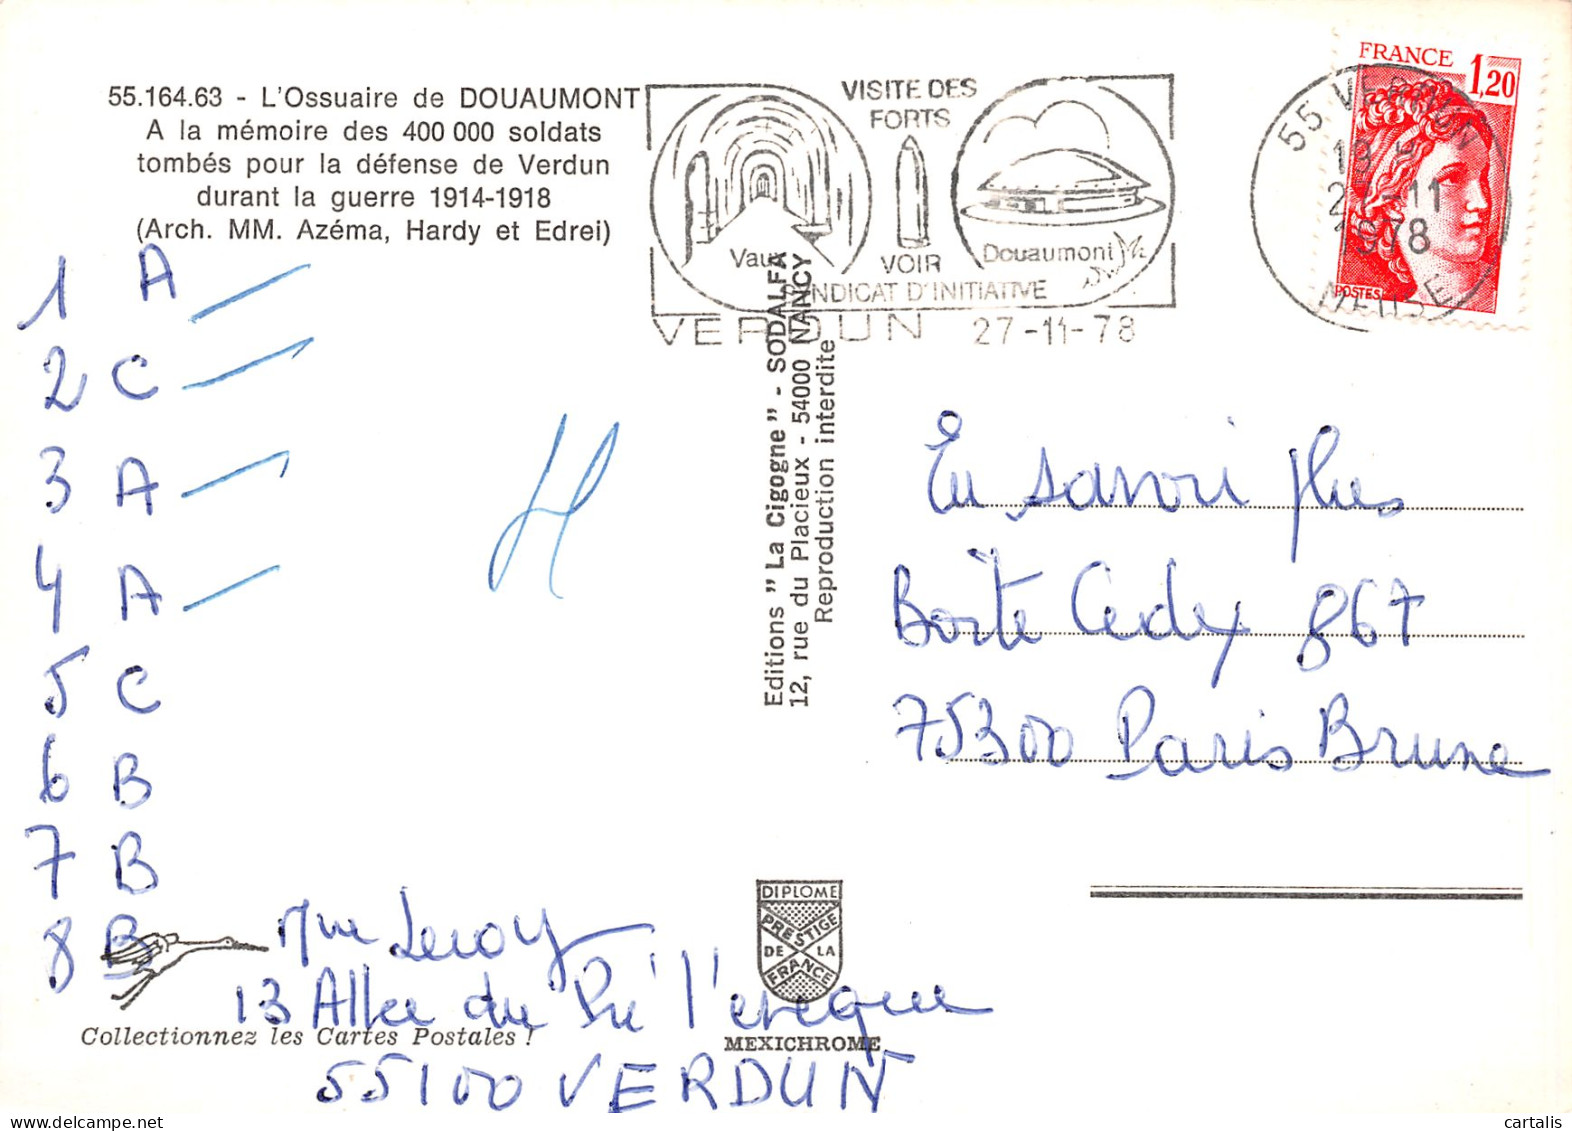 55.164.63 - L'Ossuaire de DOUAUMONT
A la mémoire des 400 000 soldats
tombés pour la défense de Verdun
durant la guerre 1914-1918
(Arch. MM. Azéma, Hardy et Edrei)
1 A
2 C
3 A
4 A
5 C
6 B
7 B
8 B
Mme Leroy
13 Allee du Pré l'eveque
55100 VERDUN
Collectionnez les Cartes Postales !
Editions "La Cigogne" - SODALFA
12, rue du Placieux - 54000 NANCY
Reproduction interdite
DIPLOME
PRESTIGE
DE LA
FRANCE
MEXICHROME
VISITE DES
FORTS
Vaux
VOIR
Douaumont
SYNDICAT D'INITIATIVE
VERDUN 27-11-78
55 VERDUN
19 H
-11
1978
MEUSE
FRANCE 1,20
POSTES
En savoir plus
Boîte Cedex 867
75300 Paris Brune
cartalis